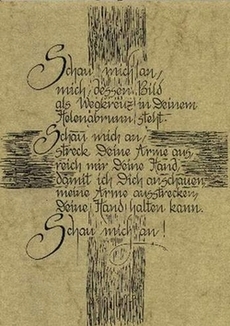 Schau mich an,
mich, dessen Bild
als Wegkreuz in Deinem
Helenabrunn steht.
Schau mich an,
streck Deine Arme aus,
reich mir Deine Hand,
damit ich Dich anschauen,
meine Arme ausstrecken,
Deine Hand halten kann.
Schau mich an!